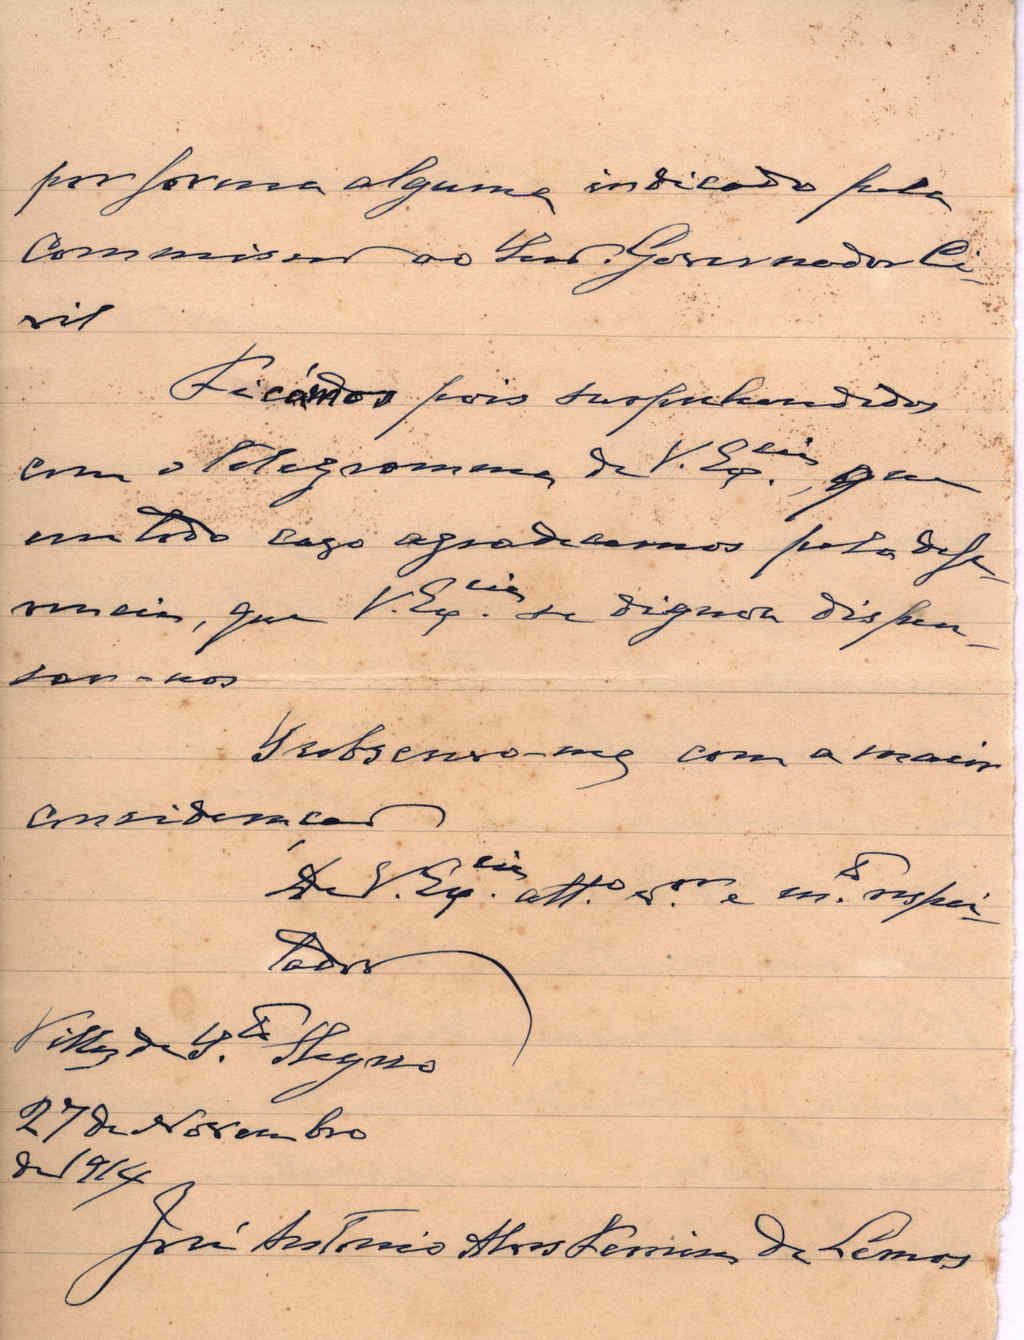 por forma alguma indicado pela
Commissão ao Snr. Governador Ci-
vil
Ficámos pois surprehendidos
com o telegramma de V. Ex.cia, que
em todo cazo agradecemos pela defe-
rencia, que V. Ex.cia se dignou dispen-
sar-nos
Subscrevo-me com a maior
consideração
De V. Ex.cia att.o v.or e m.to respei-
tador
Villa de S.ta Magno
27 de Novembro
de 1914
José Antonio Alves Ferreira de Lemos